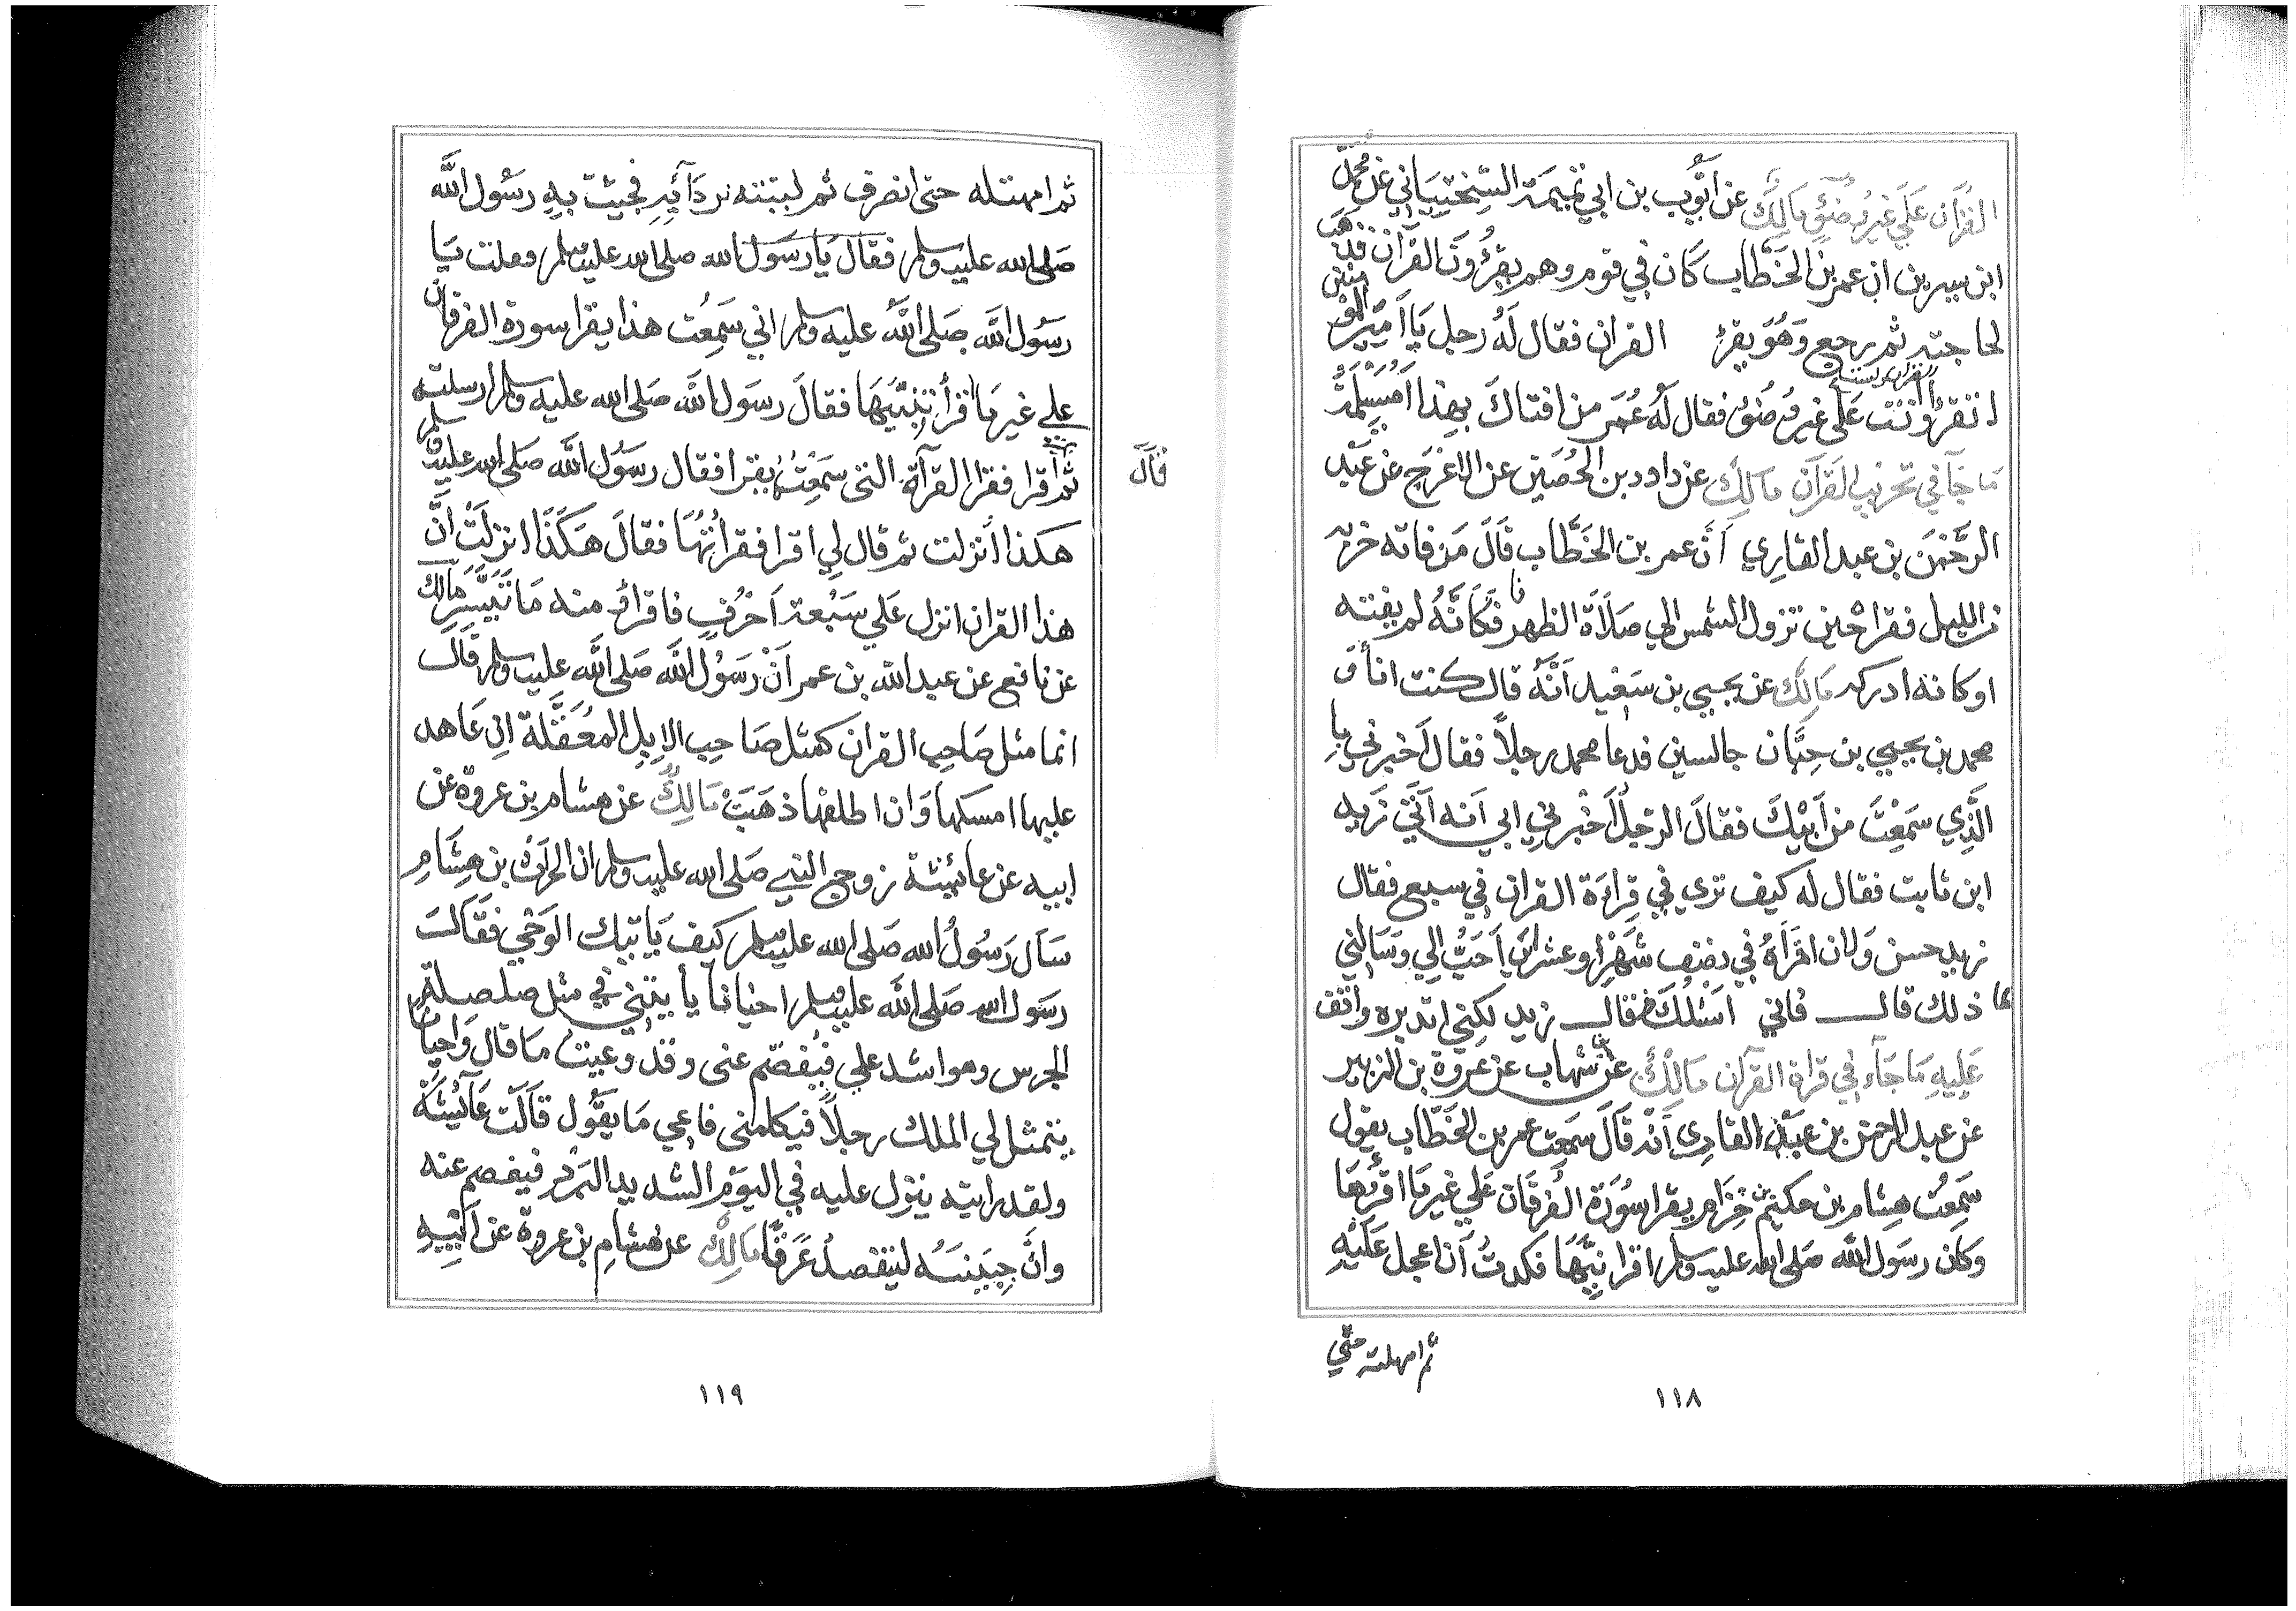 القرآن علي غير وضوء مالك عن ايوب بن ابي تميمة السختياني عن محمد
ابن سيرين ان عمر بن الخطاب كان في قوم وهم يقرؤون القران فذهب
لحاجته ثم رجع وهو يقرؤ القران فقال له رجل يا امير المومنين
اتقرؤ ونت علي غير وضو فقال له عمر من افتاك بهذا امسيلمة
ما جآ في تحزيب القرآن مالك عن داود بن الحصين عن الاعرج عن عبد
الرحمن بن عبد القاري أن عمر بن الخطاب قال من فاته حزبه
من الليل فقرا حين تزول الشمس الي صلاة الظهر فكأنه لم يفته
او كانه ادركه مالك عن يحيي بن سعيد انه قال كنت انا و
محمد بن يحيي بن حبان جالسين فدعا محمد رجلا فقال اخبرني با
الذي سمعت من ابيك فقال الرجل اخبرني ابي انه اتي زيد
ابن ثابت فقال له كيف تري في قراءة القران في سبع فقال
زيد حسن ولان اقراه في نصف شهر او عشر احب الي وسالني
عما ذلك قال فاني اسئلك فقال زيد لكني اتدبره واقف
عليه ما جآء في قراة القرآن مالك عن شهاب عن عروة بن الزبير
عن عبد الرحمن بن عبد القادي انه قال سمعت عمر بن الخطاب يقول
سمعت هشام بن حكيم بن حزام يقرا سورة الفرقان علي غير ما اقرؤها
وكان رسول الله صلى الله عليه وسلم اقرانيها فكدت أن اعجل عليه
ثم امهلته حتي
١١٨
ثم امهتله حتى انصرف ثم لببته بردآئه فجيت به رسول الله
صلى الله عليه وسلم فقال يا رسول الله صلى الله عليه وسلم فعلت يا
رسول الله صلى الله عليه وسلم اني سمعت هذا يقرا سورة الفرقان
علي غير ما اقرأتنيها فقال رسول الله صلى الله عليه وسلم ارسلته
ثم قال اقرا فقرا القرآة التى سمعته يقرا فقال رسول الله صلى الله عليه وسلم
هكذا أنزلت ثم قال لي اقرا فقراتها فقال هكذا انزلت ان
هذا القران انزل علي سبعة احرف فاقراو منه ما تيسر مالك
عن نافع عن عبد الله بن عمر ان رسول الله صلى الله عليه وسلم قال
انما مثل صاحب القران كمثل صاحب الابل المعقلة ان عاهد
عليها امسكها وان اطلقها ذهبت مالك عن هشام بن عروة عن
ابيه عن عائيشة زوج النبي صلى الله عليه وسلم ان الحرث بن هشام
سآل رسول الله صلى الله عليه وسلم كيف ياتيك الوحي فقال
رسول الله صلى الله عليه وسلم احيانا يأتيني في مثل صلصلة
الجرس وهو اشد علي فيفصم عنى وقد وعيت ما قال واحيانا
يتمثل لي الملك رجلاً فيكلمنى فاعي ما يقول قالت عآئيشة
ولقد رايته ينزل عليه في اليوم الشديد البرد فيفصم عنه
وان جبينه ليتفصد عرقا مالك عن هشام بن عروة عن ابيه
قال
١١٩